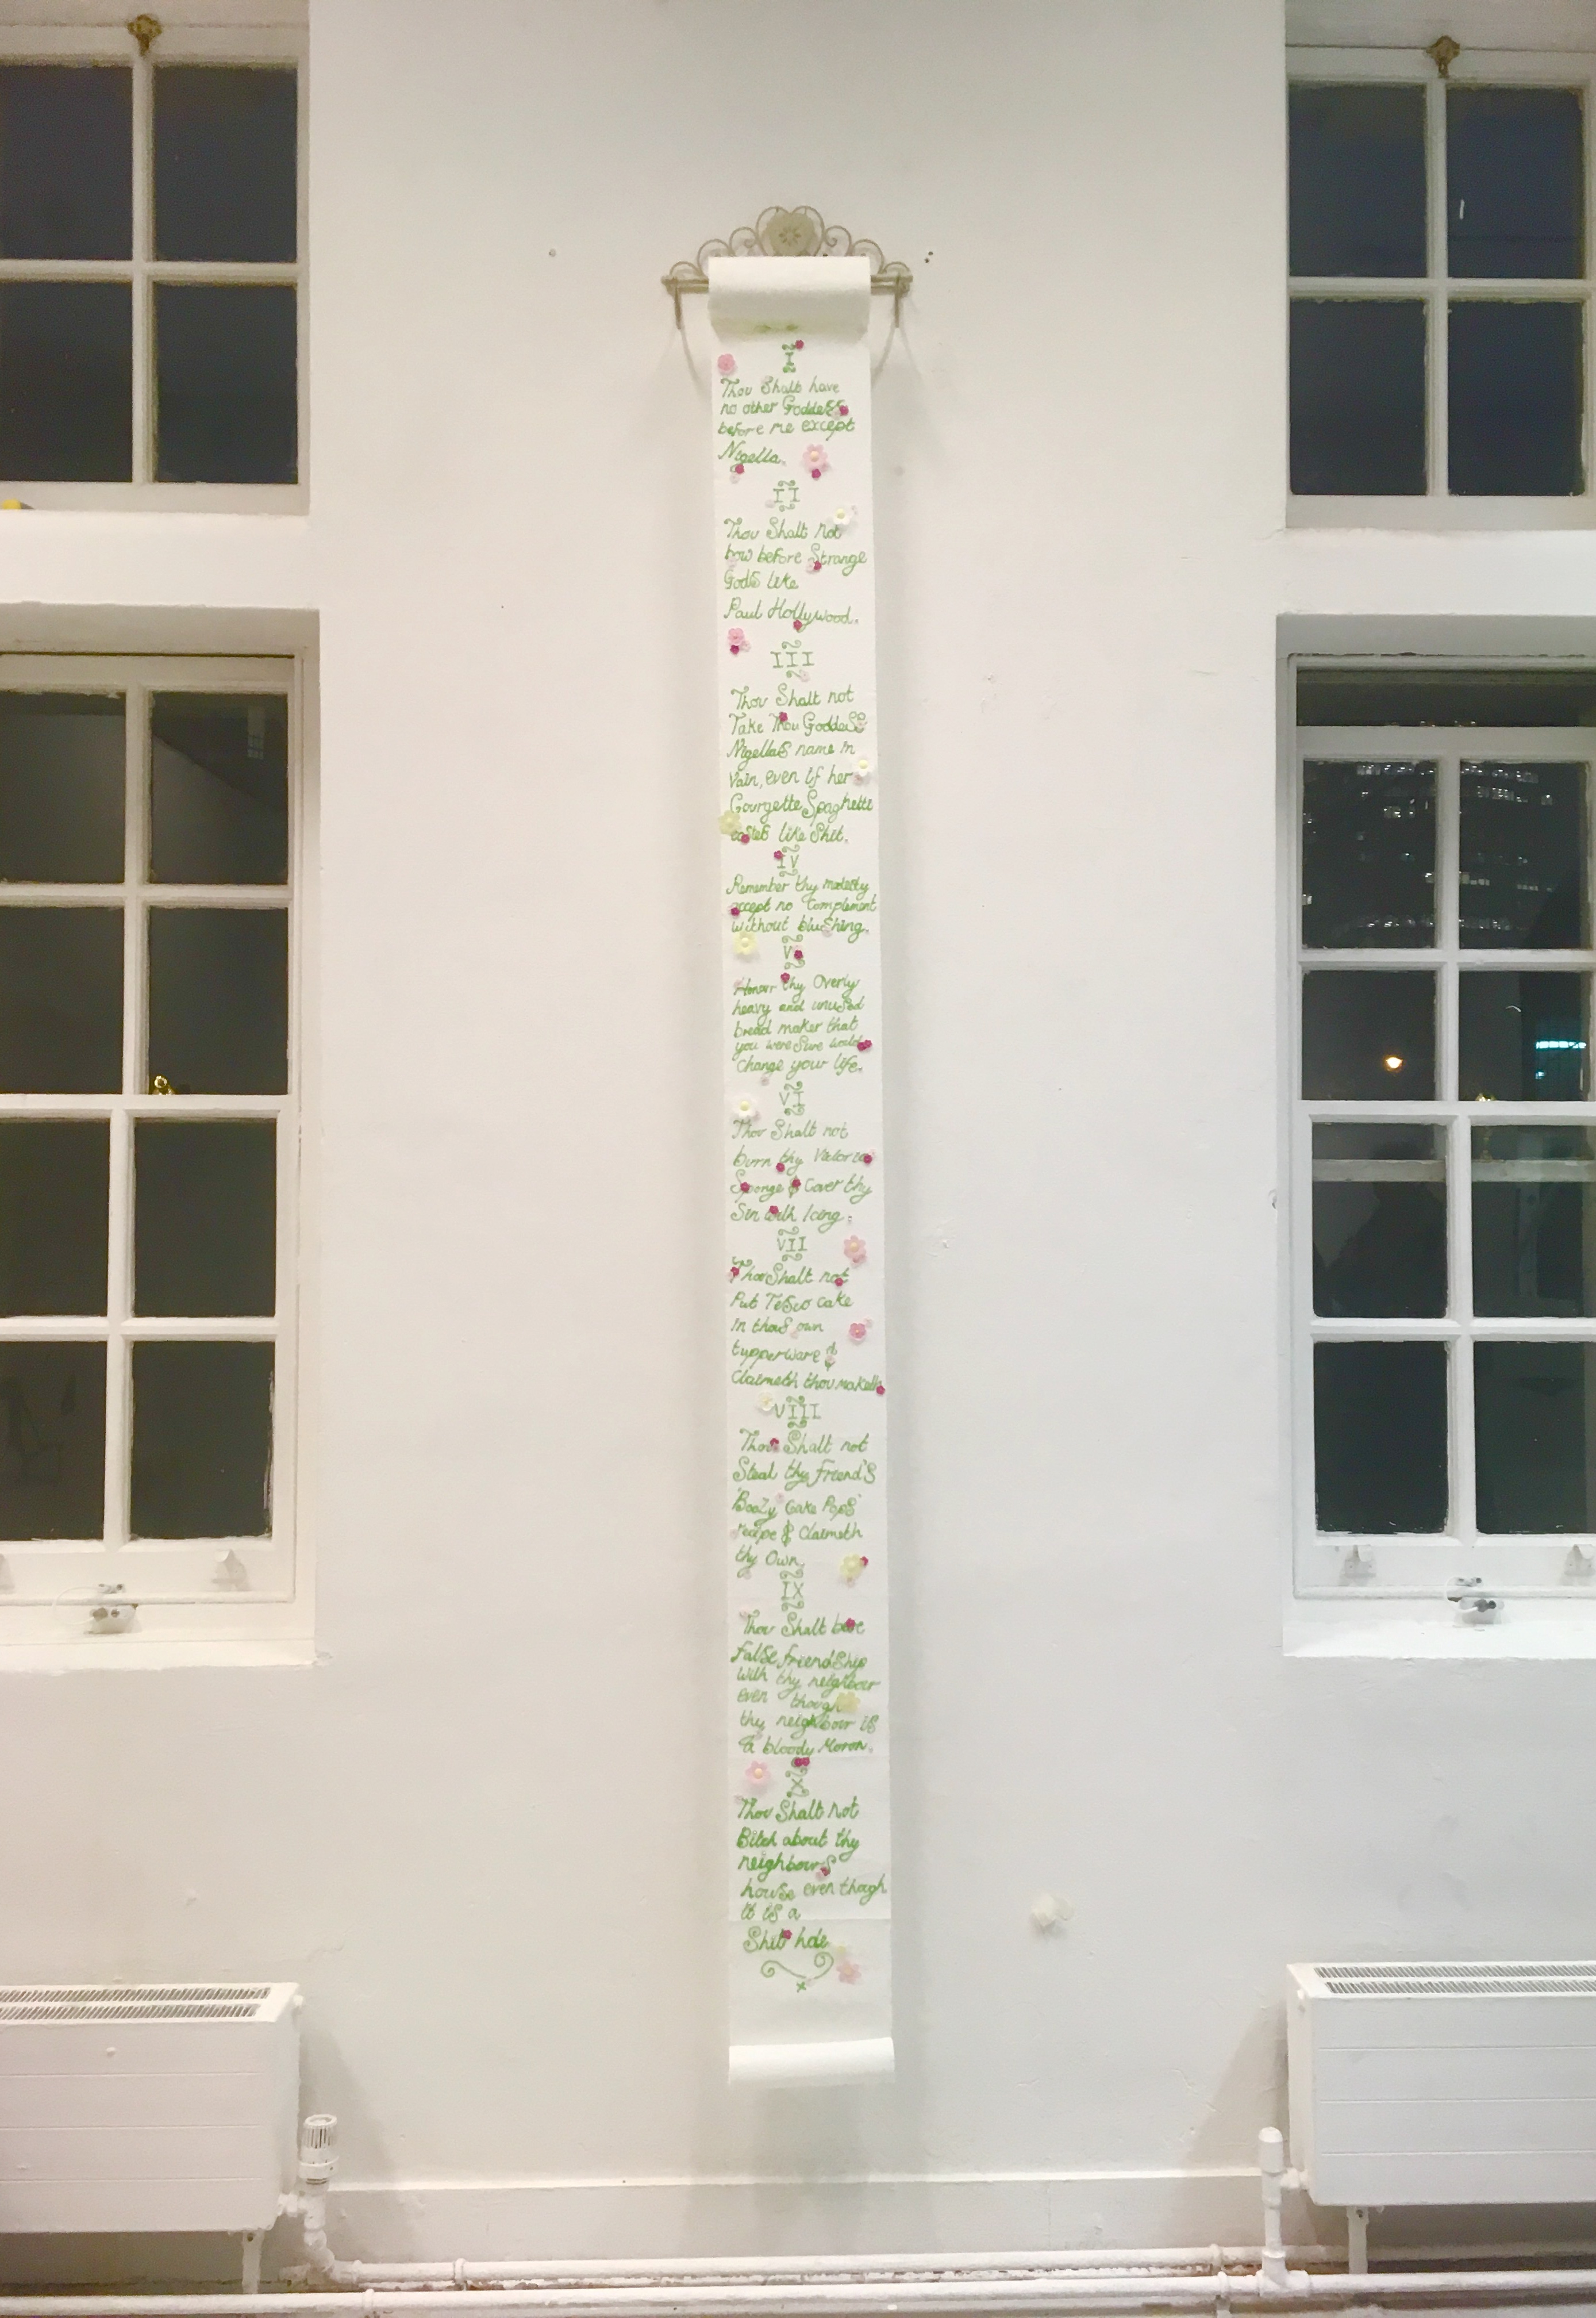 I
Thou Shalt have
no other Goddess
before me except
Nigella.
II
Thou Shalt not
bow before Strange
Gods like
Paul Hollywood.
III
Thou Shalt not
Take Thou Goddess
Nigellas name in
Vain, even if her
Courgette Spaghette
tastes like Shit.
IV
Remember thy modesty
accept no Complement
without blushing.
V
Honour thy Overly
heavy and unused
bread maker that
you were Sure would
Change your life.
VI
Thou Shalt not
burn thy Victoria
Sponge & Cover thy
Sin with Icing.
VII
Thou Shalt not
Put Tesco cake
in thous own
tupperware &
Claimeth thou maketh
VIII
Thou Shalt not
Steal thy friend's
'Boozy Cake Pops'
recipe & Claimeth
thy Own.
IX
Thou Shalt bare
false friendship
with thy neighbour
even though
thy neighbour is
a bloody Moron.
X
Thou Shalt Not
Bitch about thy
neighbours
house even though
it is a
Shit hole
x